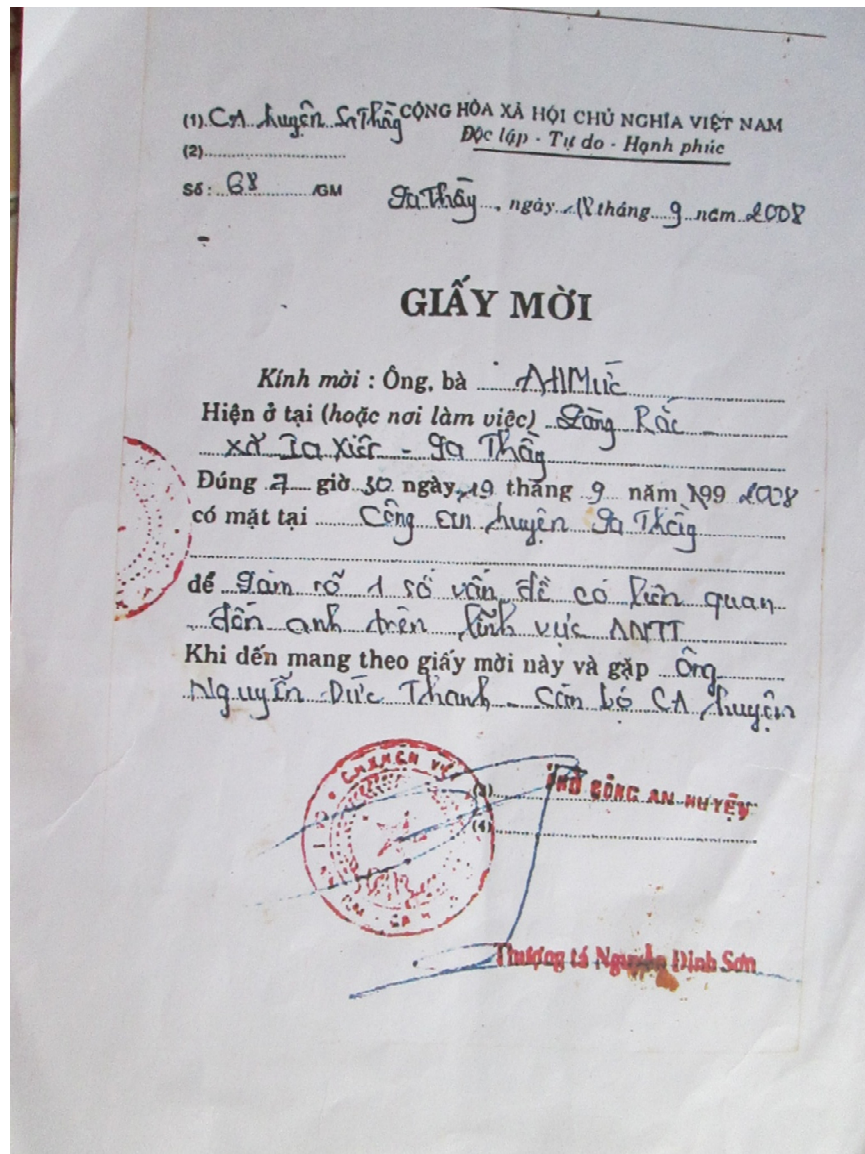 (1) CA huyện Sa Thầy CỘNG HÒA XÃ HỘI CHỦ NGHĨA VIỆT NAM
(2) Độc lập - Tự do - Hạnh phúc
Số: 68 /GM Sa Thầy, ngày 18 tháng 9 năm 2008
GIẤY MỜI
Kính mời : Ông, bà
Hiện ở tại (hoặc nơi làm việc) Làng Rắc
xã Ia Xiêr - Sa Thầy
Đúng 7 giờ 30 ngày 19 tháng 9 năm 199 2008
có mặt tại Công an huyện Sa Thầy
để Làm rõ 1 số vấn đề có liên quan
đến anh trên lĩnh vực ANTT
Khi đến mang theo giấy mời này và gặp Ông
Nguyễn Đức Thanh - Cán bộ CA huyện
(3) CÔNG AN HUYỆN
(4)
Thượng tá Nguyễn Định Sơn